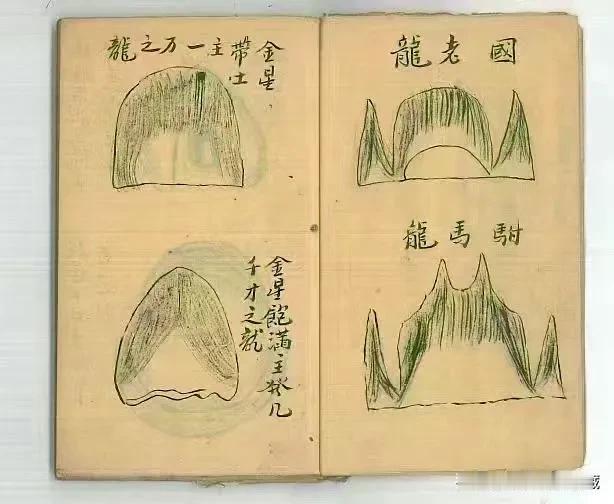 國老龍
駙馬龍
金星，
帶土
主一万之龍
金星飽滿主發几
千才之龍